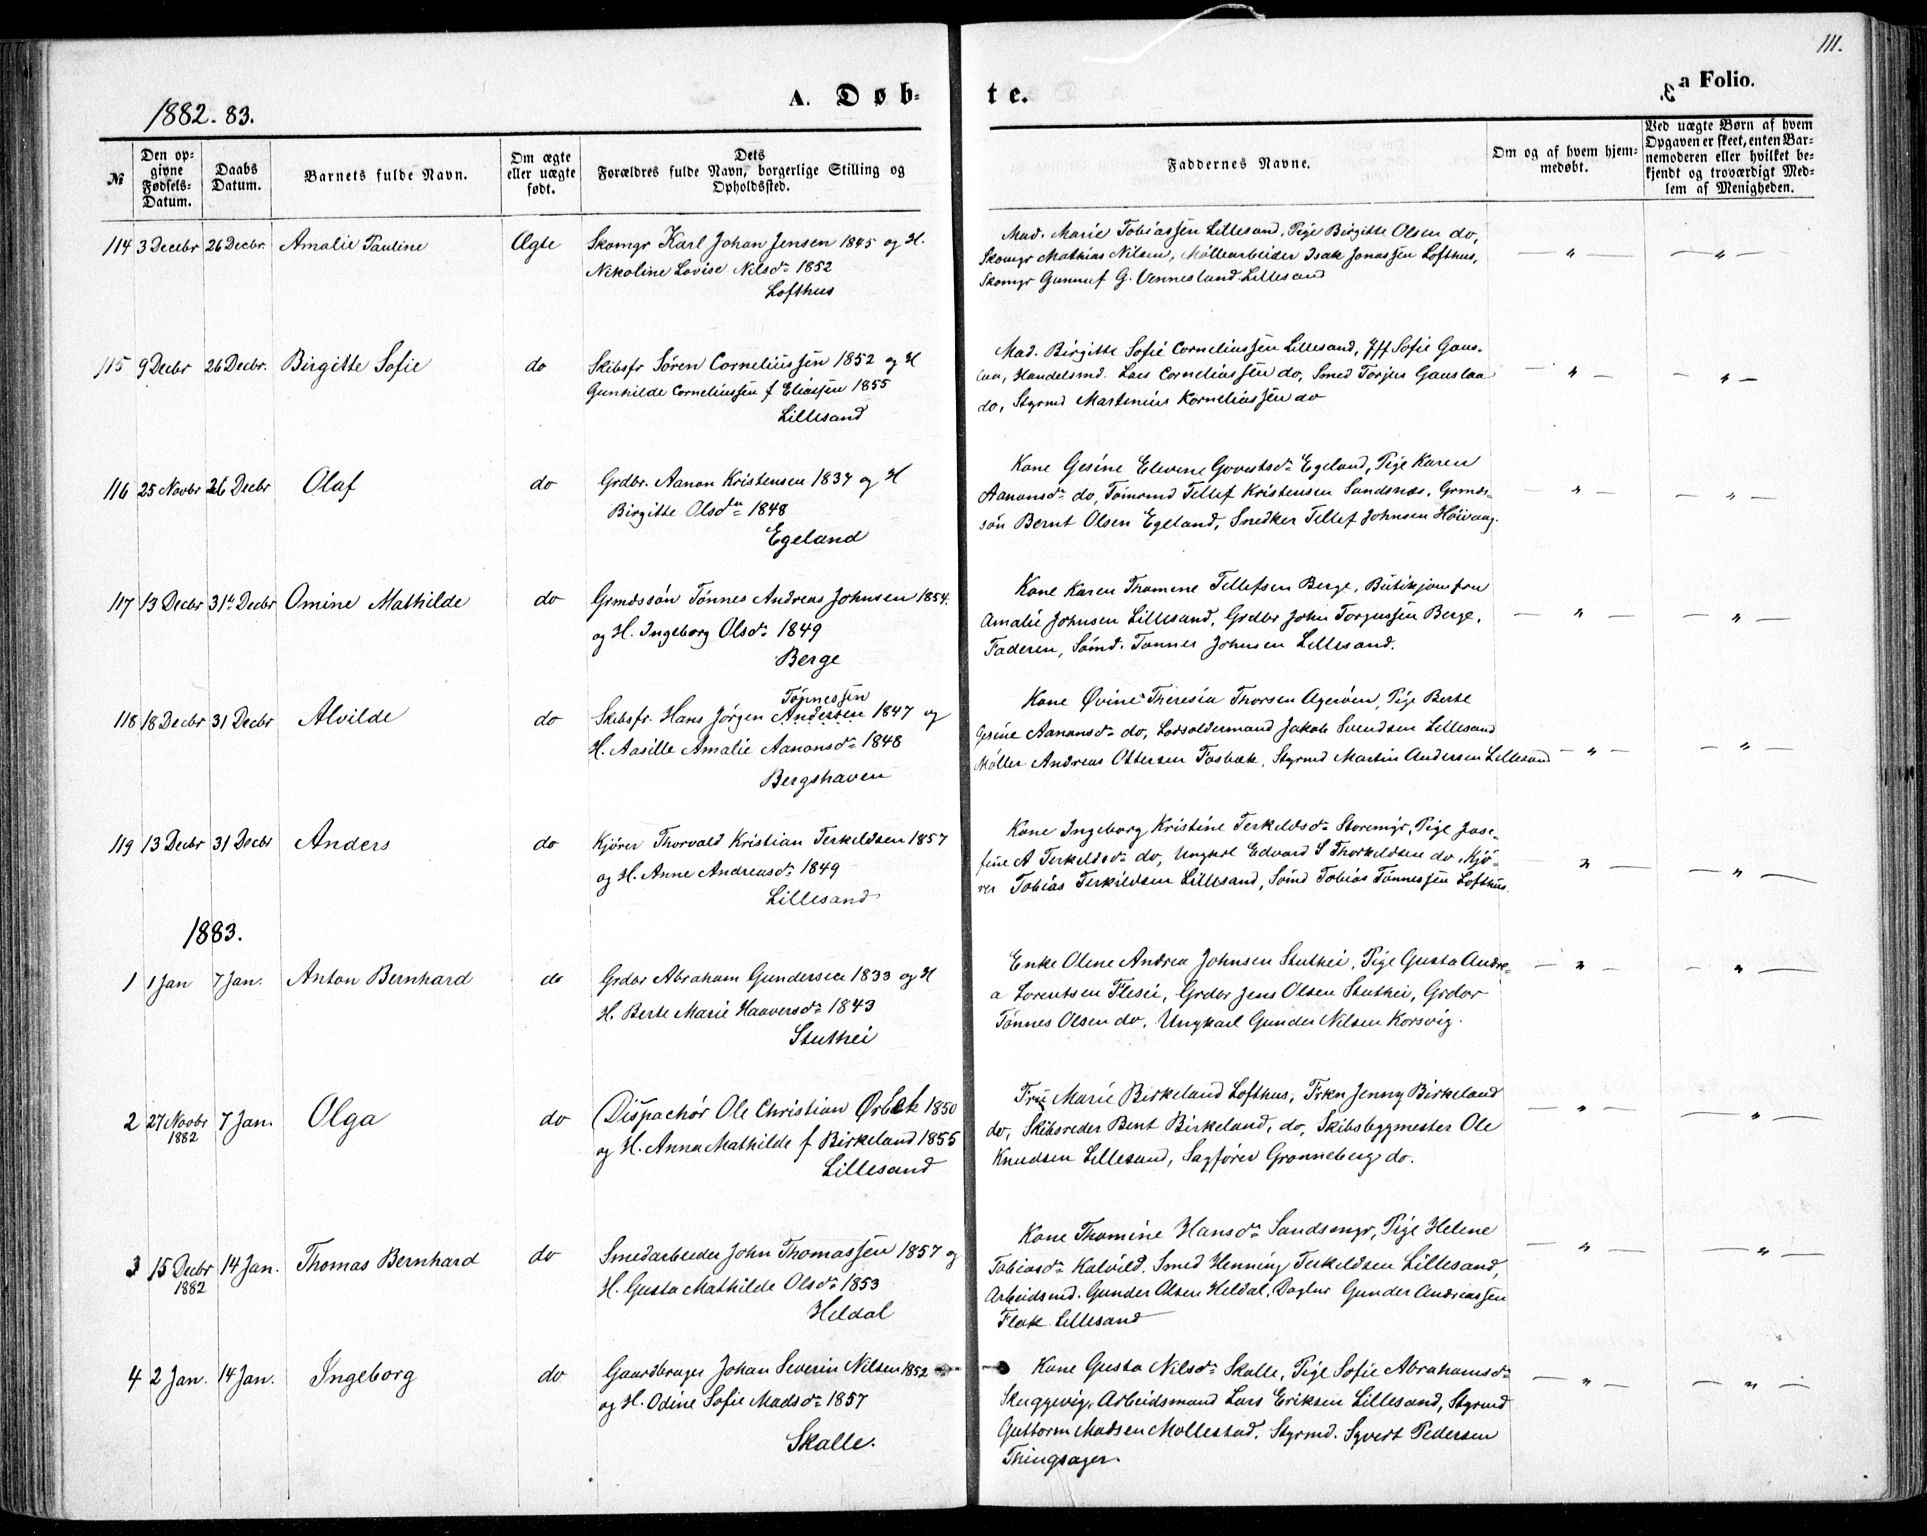 111.
1882. 83.
A. Døb-
te.
a Folio.
№
Den op-
givne
Fødsels-
Datum.
Daabs
Datum.
Barnets fulde Navn.
Om ægte
eller uægte
født.
Dets
Forældres fulde Navn, borgerlige Stilling og
Opholdssted.
Faddernes Navne.
Om og af hvem hjem-
medøbt.
Ved uægte Børn af hvem
Opgaven er skeet, enten Bar-
nemoderen eller hvilket be-
kjendt og troværdigt Med-
lem af Menigheden.
114 3 Decbr 26 Decbr. Amalie Pauline Ægte
Skomgr Karl Johan Jensen 1845 og H.
Nikoline Lovise Nilsd. 1852
Lofthus
Mad. Marie Tobiassen Lillesand, Pige Birgitte Olsen do,
Skomgr Mathias Nilsen, Møllearbeider Isak Jonassen Lofthus,
Skomgr Gunnuf G. Vennesland Lillesand
115 9 Decbr 26 Decbr. Birgitte Sofie do
Skibsfr Søren Corneliussen 1852 og H
Gunhilde Corneliussen f Eliassen 1855
Lillesand
Mad. Birgitte Sofie Corneliussen Lillesand, Jff Sofie Gaus-
laa, Handelsmd. Lars Corneliussen do, Smed Torjus Gauslaa
do, Styrmd Martinius Korneliussen do
116 25 Novbr 26 Decbr Olaf do
Grdbr. Aanon Kristensen 1837 og H
Birgitte Olsd. 1848
Egeland
Kone Gesine Elevine Govertsd. Egeland, Pige Karen
Aanonsd. do, Tømrmd Tellef Kristensen Sandsnæs, Grmds-
søn Bernt Olsen Egeland, Snedker Tellef Johnsen Høivaag.
117 13 Decbr 31te Decbr Omine Mathilde do
Grmdssøn Tønnes Andreas Johnsen 1854.
og H. Ingeborg Olsd. 1849
Berge
Kone Karen Thomine Tellefsen Berge, Butikjomfru
Amalie Johnsen Lillesand, Grdbr John Torgussen Berge,
Faderen, Sømd. Tønnes Johnsen Lillesand.
118 18 Decbr 31 Decbr Alvilde do
Tønnessen
Skibsfr. Hans Jørgen Andersen 1847 og
H. Aasille Amalie Aanonsd. 1848
Bergshaven
Kone Øvine Theresia Thorsen Agerøen, Pige Berte
Gesine Aanonsd. do, Lodsoldermand Jakob Svendsen Lillesand
Møller Andreas Ottersen Fosbæk, Styrmd Martin Andersen Lillesand
119 13 Decbr 31 Decbr Anders do
Kjører Thorvald Kristian Terkeldsen 1857
og H. Anne Andreasd. 1849
Lillesand
Kone Ingeborg Kristine Terkeldsd. Storemyr, Pige Jose-
fine A Terkeldsd. do, Ungkrl Edvard S Thorkeldsen do, Kjø-
rer Tobias Terkildsen Lillesand, Sømd Tobias Tønnessen Lofthus.
1883.
1 1 Jan 7 Jan. Anton Bernhard do
Grdbr Abraham Gundersen 1833 og H
H. Berte Marie Haaversd. 1843
Stuthei
Enke Olene Andrea Johnsen Stuthei, Pige Gusta Andre-
a Lorentsen Flesei, Grdbr Jens Olsen Stuthei, Grdbr
Tønnes Olsen do, Ungkarl Gunder Nilsen Korsvig.
2 27 Novbr 1882 7 Jan. Olga do
Dispachør Ole Christian Ørbek 1850
og H. Anna Mathilde f Birkeland 1855
Lillesand
Fru Marie Birkeland Lofthus, Frkn Jenny Birkeland
do, Skibsreder Bent Birkeland, do, Skibsbygmester Ole
Knudsen Lillesand, Sagfører Grønneberg do.
3 15 Decbr 1882 14 Jan. Thomas Bernhard do
Smedarbeider John Thomassen 1857 og
H. Gusta Mathilde Olsd. 1853
Heldal
Kone Thomine Hansd. Sandsmyr, Pige Helene
Tobiasd. Kalvild. Smed Henning Terkeldsen Lillesand,
Arbeidsmd. Gunder Olsen Heldal, Daglnr Gunder Andreassen
Flak Lillesand
4 2 Jan. 14 Jan. Ingeborg do
Gaardbruger Johan Severin Nilsen 1852
og H. Odine Sofie Madsd. 1857
Skalle.
Kone Gusta Nilsd. Skalle, Pige Sofie Abrahamsd.
Skuggevig, Arbeidsmand Lars Eriksen Lillesand, Styrmd
Guttorm Madsen Mollestad, Styrmd. Syvert Pedersen
Thingsager.